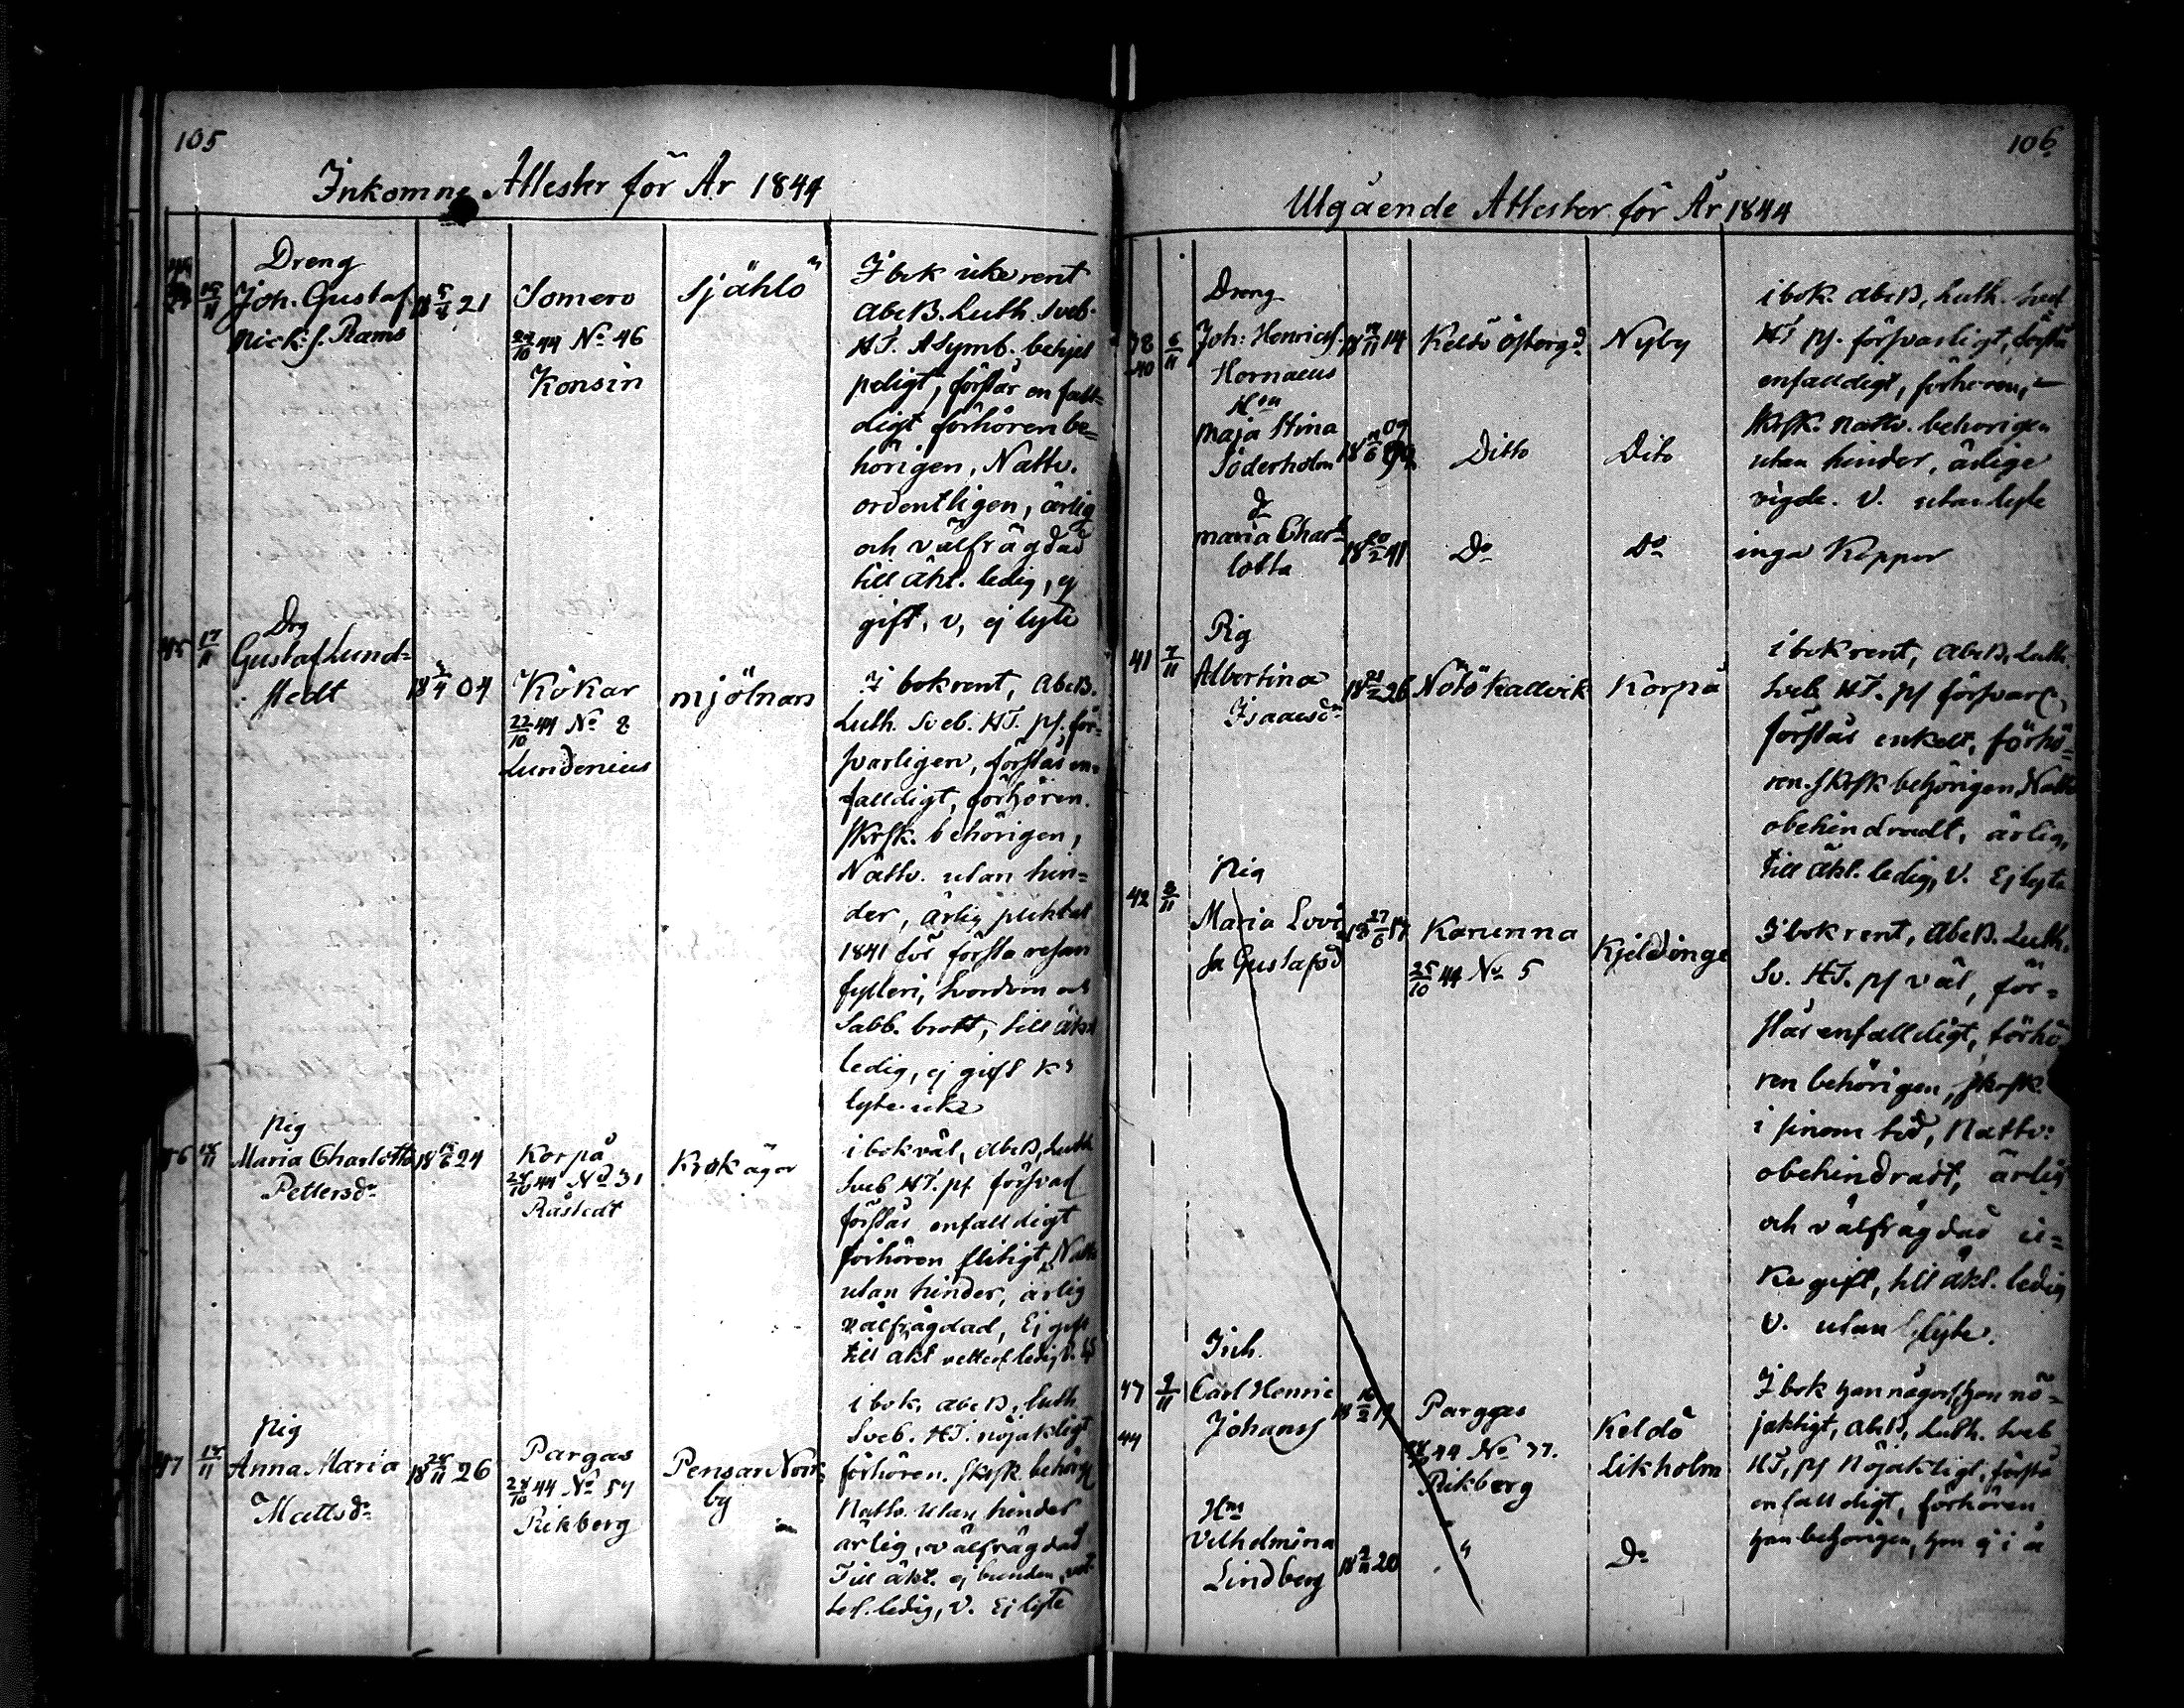 105
Inkomne Attester för År 1844
Dreng
Joh. Gustaf
Nick: s. Rams
15/11
18 5/4 21
Somero
24/10 44 No 46
Konsin
Själlö
I bok icke rent
AbcB. Luth. Sveb.
HT. ASymb. behjel
peligt, förstår en fall=
digt förhören be=
hörigen, Nattv.
ordentligen, ärlig
och välfrägdad
till äkt. ledig, ej
gift, v, ej lyte
45 17/11
Drg
Gustaf Lund=
stedt
04
Kökar
22/10 44 No 8
Lundenius
mjölnars
I bok rent, AbcB.
Luth. Sveb. HT. ps. för=
svarligen, förstås en=
falldigt, förhören.
skrsk. behörigen,
Nattv. utan hin=
der, ärlig pliktat
1841 för första resan
fylleri, svordom och
Sabb. brott, till äkt
ledig, ej gift
lyte
46
pig
Maria Charlotta
Pettersdr
24
Korpå
44 No 31
Råstedt
Krok äger
i bok väl, AbcB, Luth
Sveb HT. ps försvarl
förstår enfalldigt
förhören flitigt, Nattv
utan hinder, ärlig
välfrägdad, Ej gift
till äkt ledig
47
pig
Anna Maria
Mattsdr
26
Pargas
44 No 57
Rikberg
Pensar Norr
by
i bok, AbcB, Luth
Sveb. HT. nöjaktigt
förhören. skrsk. behörigl
Nattv. utan hinder
ärlig, välfrägdad
Till äkt. ej bunden,
ledig, V. Ej lyte
106
Utgående Attester för År 1844
38
40
6/11
Dreng
Joh: Henrics.
Hornaeus
14
Keldö Österg
Nyby
Hon
Maja Stina
Söderholm
Ditto
Dito
d
Maria Char=
lotta
18 20/2 41
Do
Do
i bok. AbcB, Luth. Sveb
HT ps. försvarligt, förstå
enfalldigt, förhören,
skrsk. nattv. behörigen
utan hinder, ärlige
vigde. V. utan lyte
inga Koppor
41 7/11
Pig
Albertina
Isaacsdr
26
Nötö Kallvik
Korpå
i bok rent, AbcB, Luth.
Sveb HT. ps försvarl,
förstås enkelt, förhö=
ren. skrsk behörigen, Nattv
obehindradt, ärlig,
till äkt. ledig, V. Ej lyte
42 8/11
Pig
Maria Lovi
sa Gustafsd
18 27/6 17
Karunna
25/10 44 No 5
Kjeldinge
I bok rent, AbcB. Luth.
Sv. HT. ps väl, för=
stås enfalldigt, förhö
ren behörigen, skrsk.
i sinom tid, Nattv:
obehindradt, ärlig
och välfrägdad ic=
ke gift, till äkt. ledig
V. utan lyte.
9/11
44
Inh.
Carl Henric
Johanss
18 16/2 19
Pargas
44 No 37.
Rikberg
Keldö
Likholm
Hm
Vilhelmina
Lindberg
20
"
Do
I bok han någorl hon nö=
jaktigt, AbcB, Luth. Sveb
HT, ps Nöjaktigt, förstå
enfalldigt, förhören
han behörigen, hon ej i å